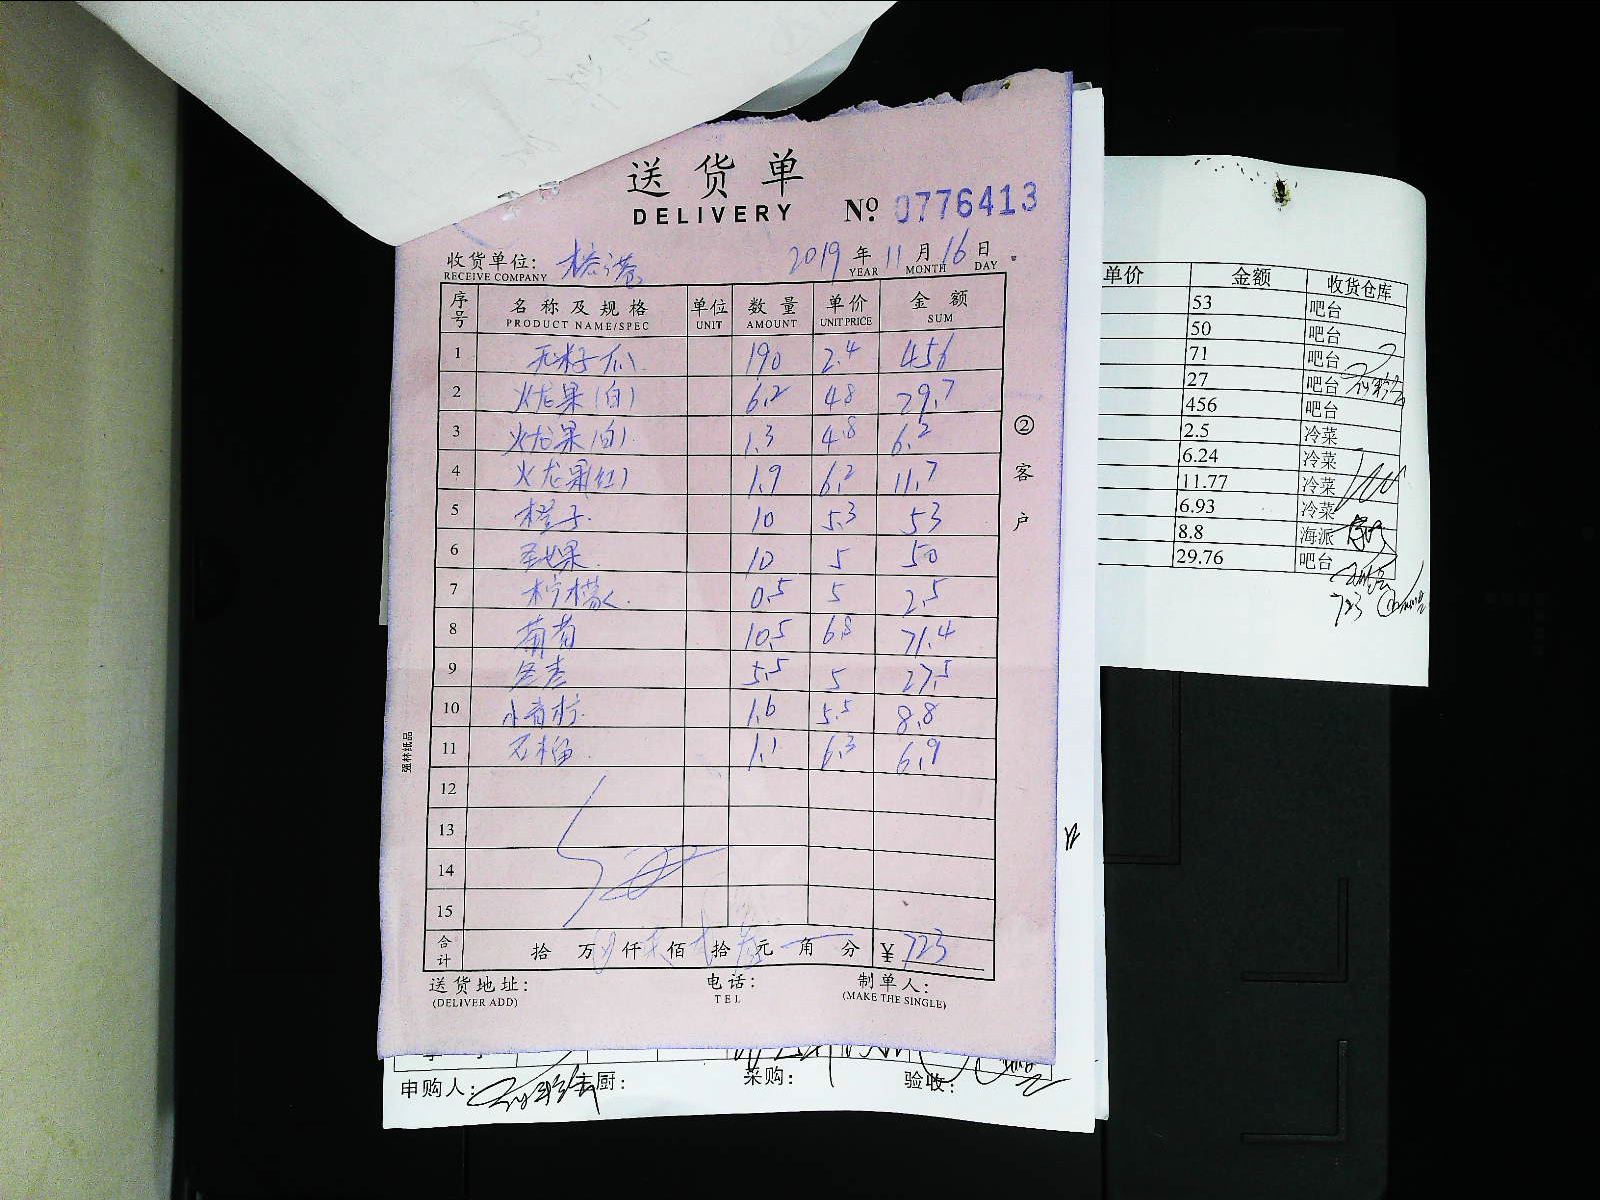 送货单
DELIVERY
No. 0776413
收货单位:
RECEIVE COMPANY
2019 年 11 月 16 日
YEAR MONTH DAY
序号 名称及规格 单位 数量 单价 金额
PRODUCT NAME/SPEC UNIT AMOUNT UNIT PRICE SUM
1 无籽瓜 190 2.4 456
2 火龙果(白) 6.2 48 29.7
3 火龙果(白) 1.3 4.8 6.2
4 火龙果(红) 1.9 6.2 11.7
5 橙子 10 5.3 53
6 圣女果 10 5 50
7 柠檬 0.5 5 2.5
8 葡萄 10.5 6.8 71.4
9 5.5 5 27.5
10 小青柠 1.6 5.5 8.8
11 石榴 1.1 6.3 6.9
12
13
14
15
合计 拾 万 仟 佰 拾 元 角 分 ¥ 723
送货地址:
(DELIVER ADD)
电话:
TEL
制单人:
(MAKE THE SINGLE)
②客户
强林纸品
单价 金额 收货仓库
53 吧台
50 吧台
71 吧台
27 吧台
456 吧台
2.5 冷菜
6.24 冷菜
11.77 冷菜
6.93 冷菜
8.8 海派
29.76 吧台
723
申购人: 主厨: 采购: 验收: